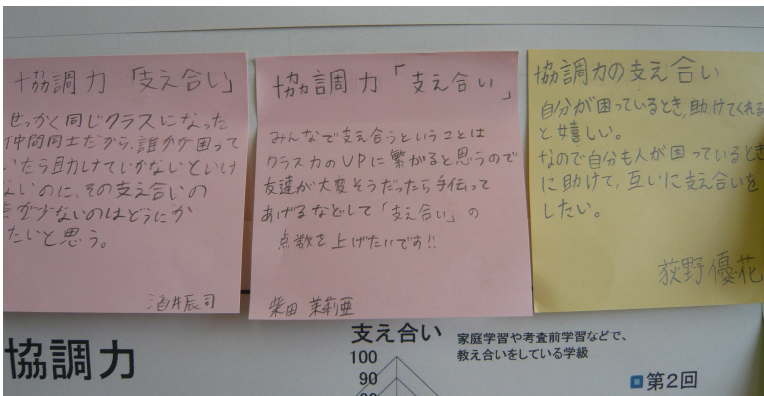 協調力「支え合い」
せっかく同じクラスになった
仲間同士だから、誰かが困って
いたら助けていかないといけ
ないのに、その支え合いの
点が少ないのはどうにか
したいと思う。
酒井辰司
協調力「支え合い」
みんなで支え合うということは
クラス力のUPに繋がると思うので
友達が大変そうだったら手伝って
あげるなどして「支え合い」の
点数を上げたいです!!
柴田 茉莉亜
協調力の支え合い
自分が困っているとき、助けてくれる
と嬉しい。
なので自分も人が困っているとき
に助けて、互いに支え合いを
したい。
荻野優花
協調力
支え合い
100
90
家庭学習や考査前学習などで、
教え合いをしている学級
第2回